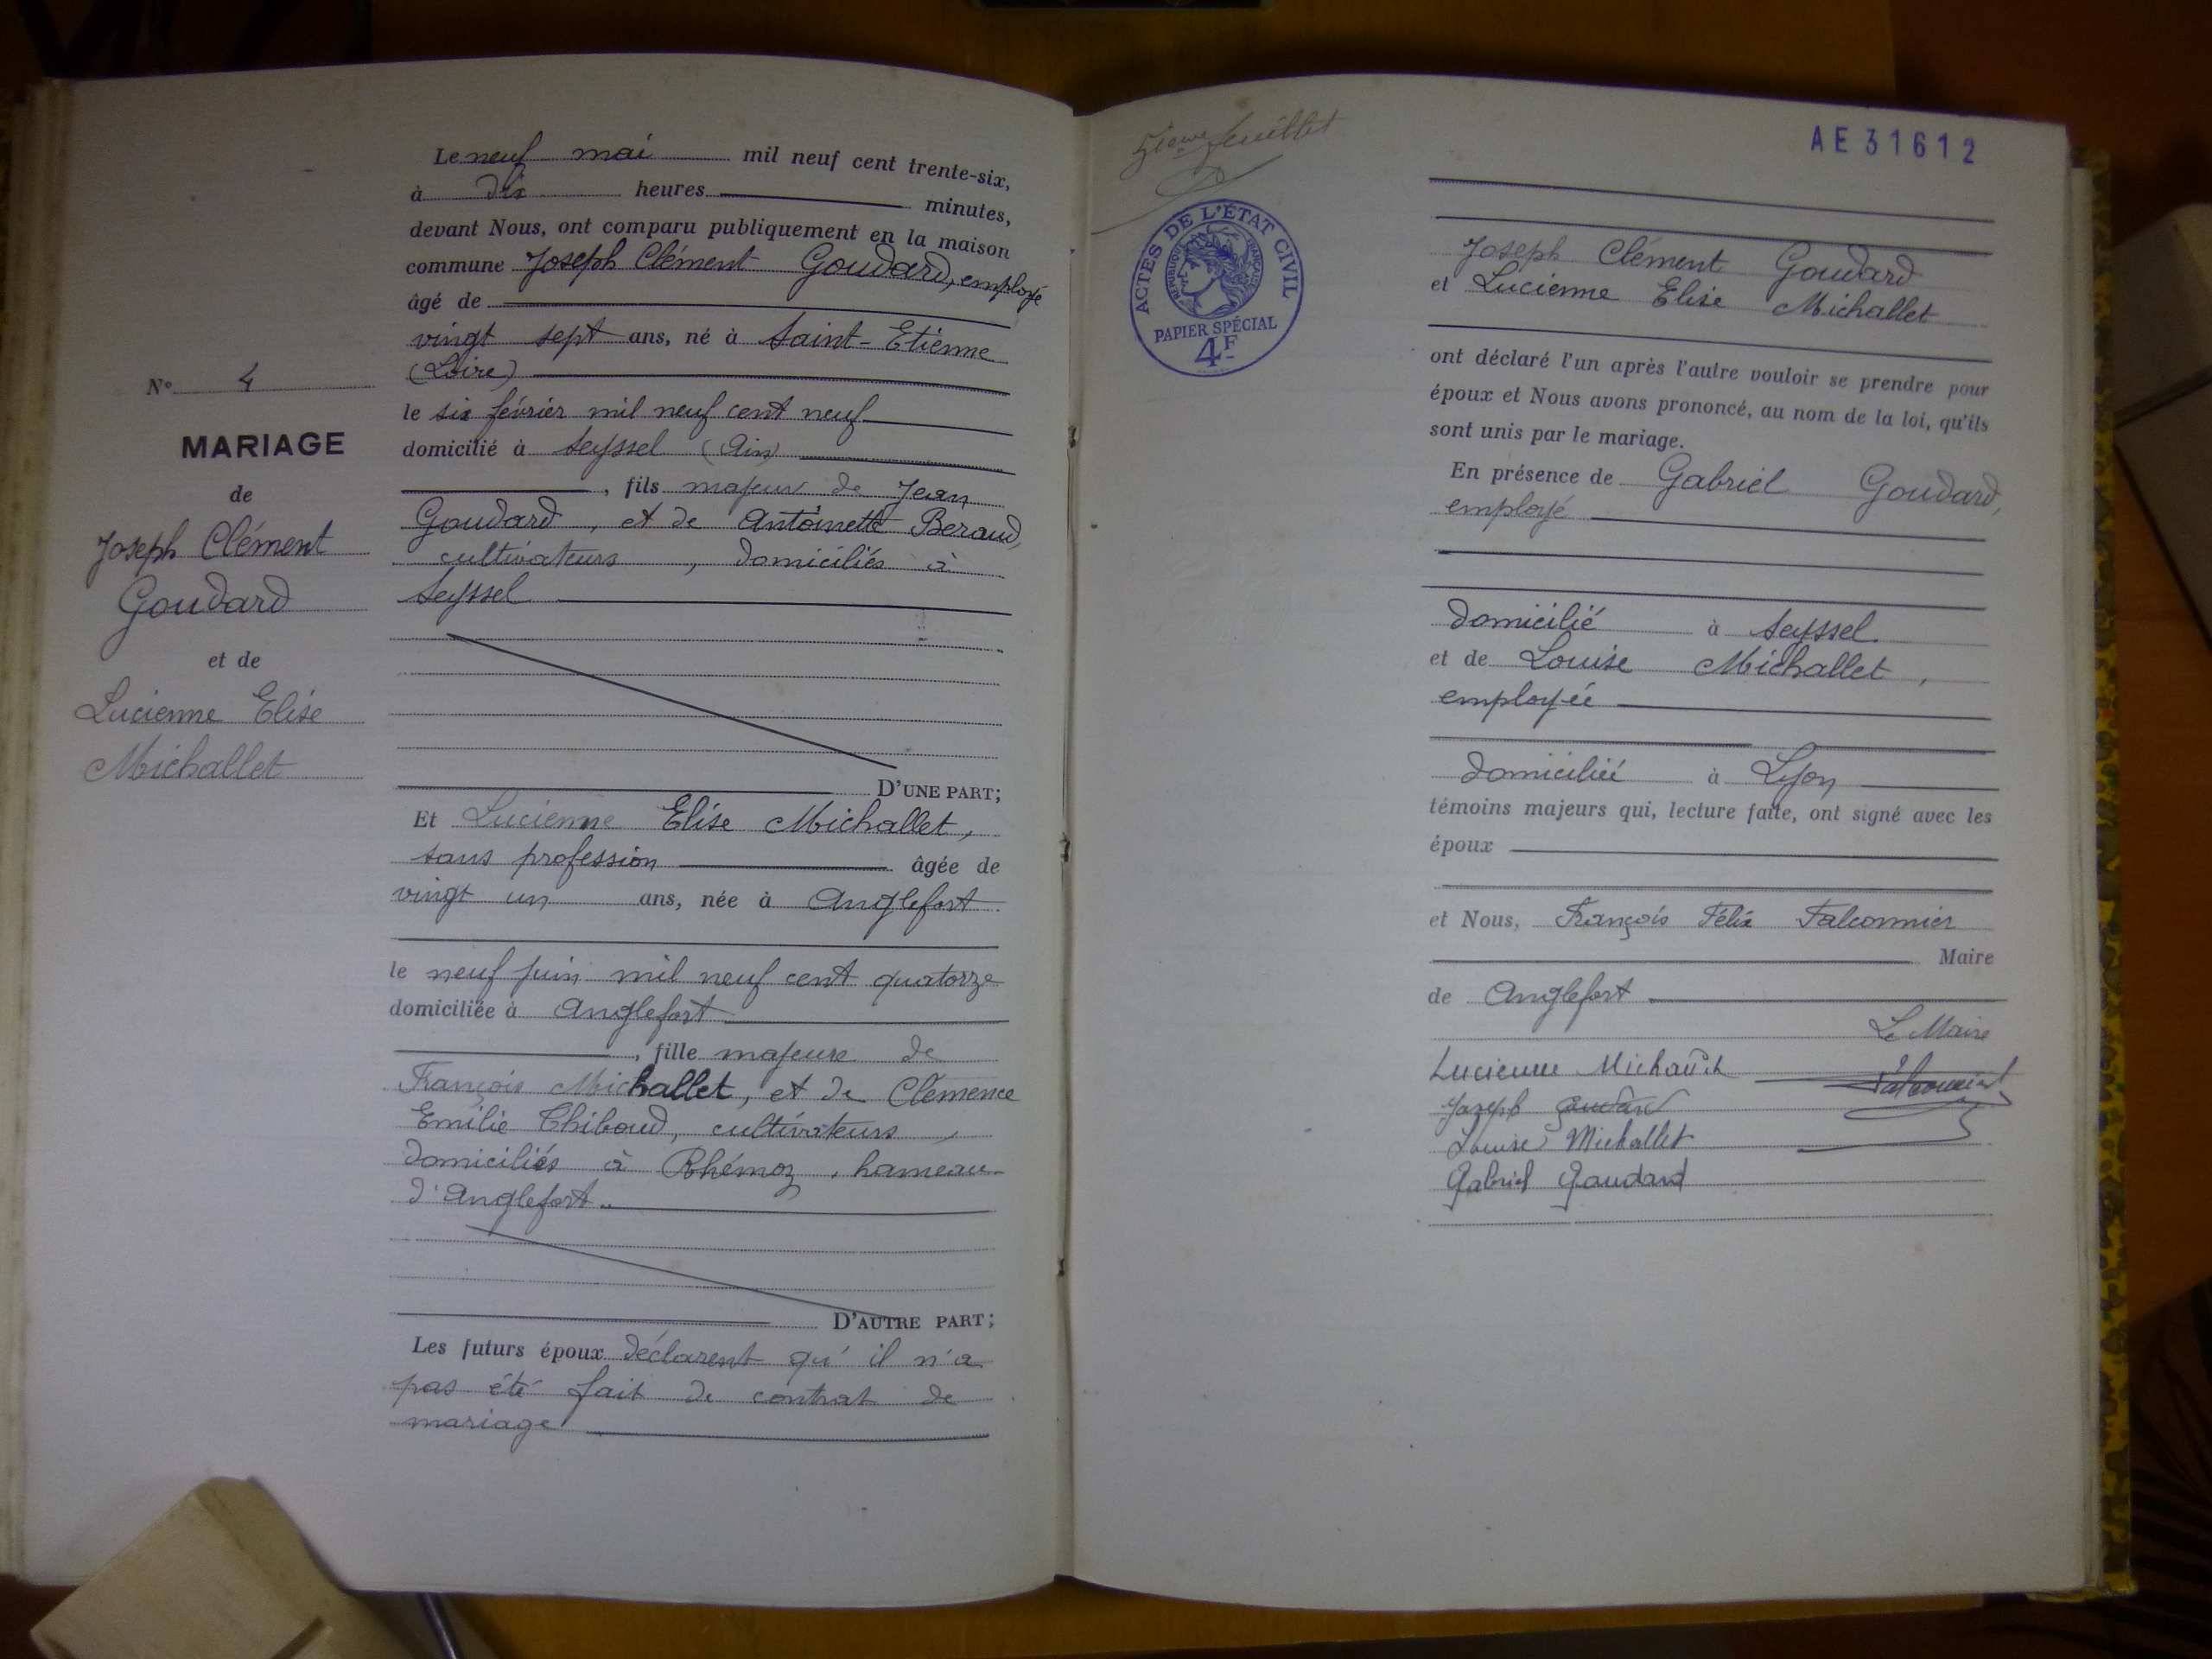 N° 4
MARIAGE
de
Joseph Clément
Goudard
et de
Lucienne Elise
Michallet
Le neuf mai mil neuf cent trente-six,
à dix heures minutes,
devant Nous, ont comparu publiquement en la maison
commune Joseph Clément Goudard, employé
âgé de
vingt sept ans, né à Saint-Etienne
(Loire)
le six février mil neuf cent neuf
domicilié à Seyssel (Ain)
, fils majeur de Jean
Goudard, et de Antoinette Beraud,
cultivateurs, domiciliés à
Seyssel
D'UNE PART;
Et Lucienne Elise Michallet,
sans profession âgée de
vingt un ans, née à Anglefort
le neuf juin mil neuf cent quatorze
domiciliée à Anglefort
, fille majeure de
François Michallet, et de Clémence
Emilie Thiboud, cultivateurs,
domiciliés à Rhémoz, hameau
d'Anglefort
D'AUTRE PART;
Les futurs époux déclarent qu'il n'a
pas été fait de contrat de
mariage
feuillet
ACTES DE L'ÉTAT CIVIL
RÉPUBLIQUE FRANÇAISE
PAPIER SPÉCIAL
4F
AE31612
Joseph Clément Goudard
et Lucienne Elise Michallet
ont déclaré l'un après l'autre vouloir se prendre pour
époux et Nous avons prononcé, au nom de la loi, qu'ils
sont unis par le mariage.
En présence de Gabriel Goudard,
employé
domicilié à Seyssel
et de Louise Michallet,
employée
domiciliée à Lyon
témoins majeurs qui, lecture faite, ont signé avec les
époux
et Nous, François Félix Falconnier
Maire
de Anglefort
Le Maire
Lucienne Michallet
Falconnier
Joseph Goudard
Louise Michallet
Gabriel Goudard